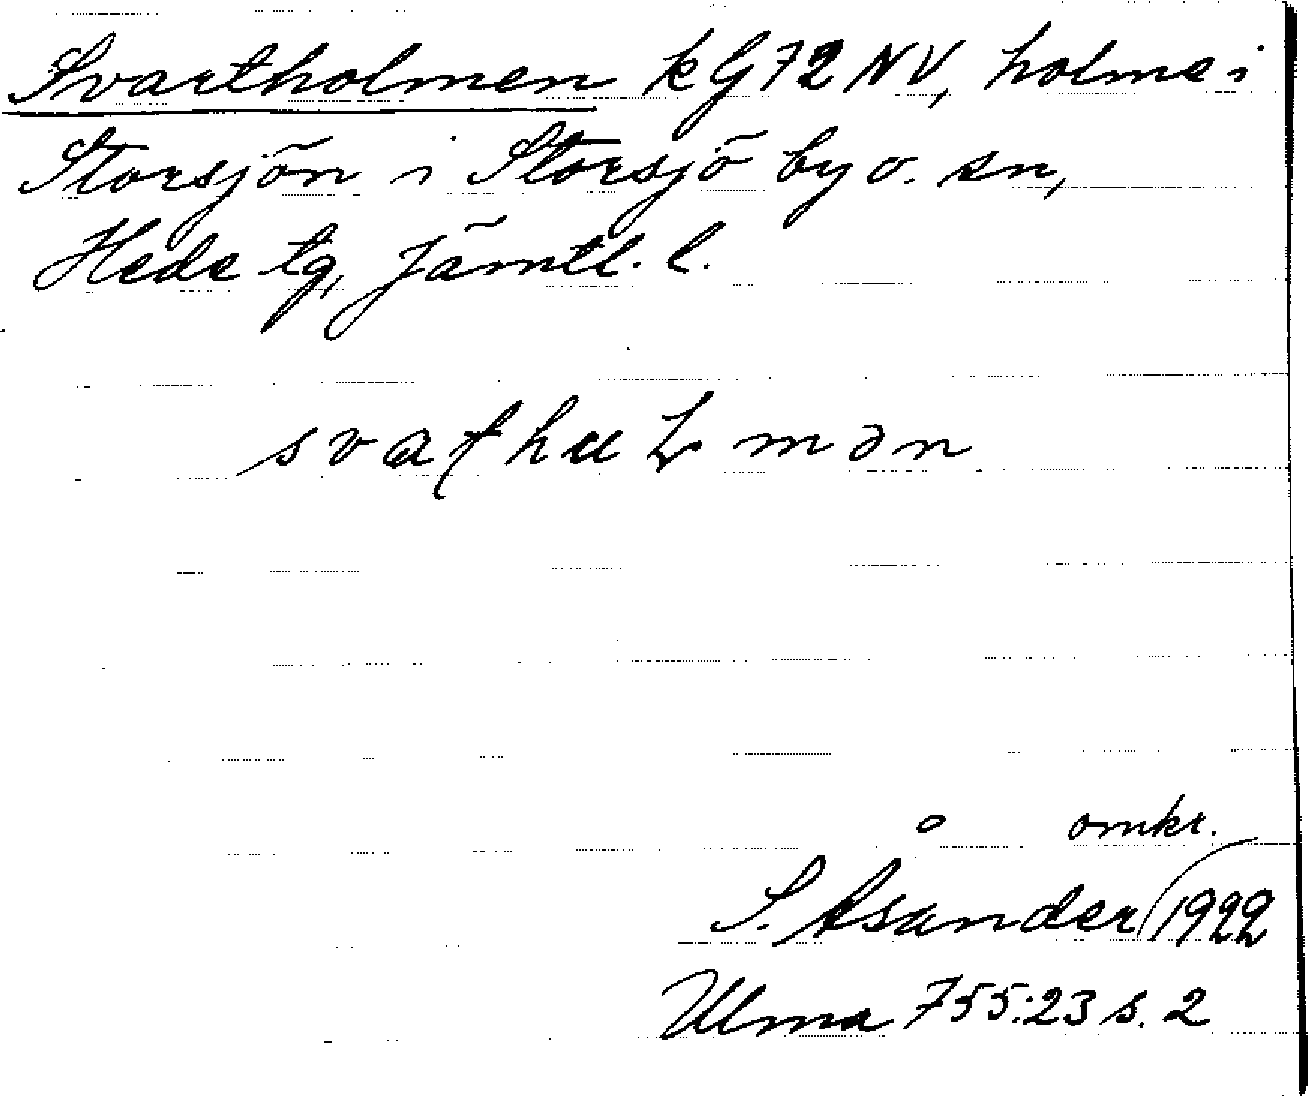 Svartholmen kG72NV, holme i
Storsjön i Storsjö by o. sn,
Hede tg, Jämtl. l.
omkr.
S. Åsander 1922
Ulma 755:23 s. 2